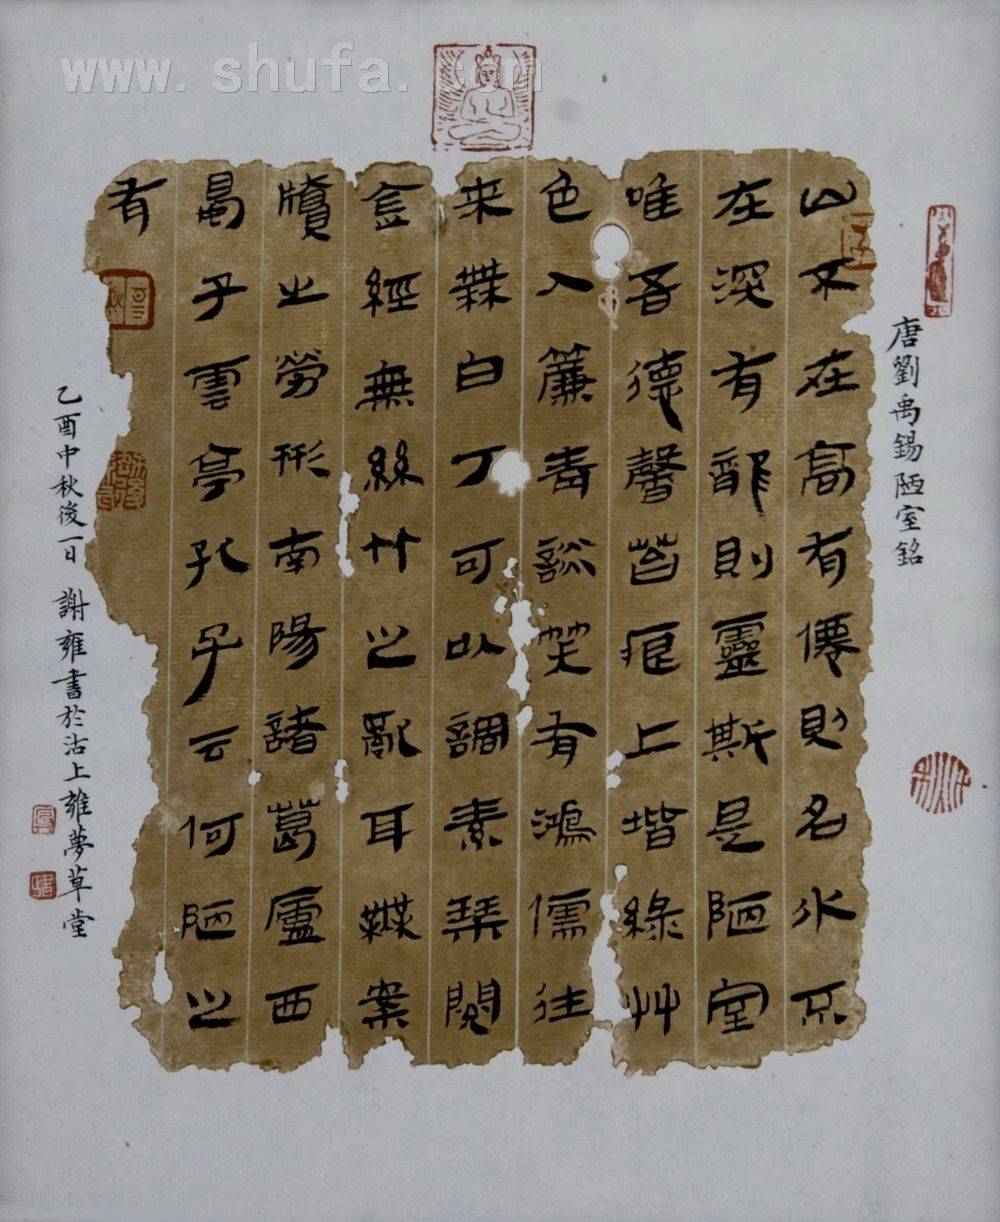 www.shufa.com
唐劉禹錫陋室銘
山不在高有僊則名水不
在深有龍則靈斯是陋室
唯吾德馨苔痕上堦綠艸
色入簾青談笑有鴻儒往
来無白丁可以調素琴閱
金經無絲竹之亂耳無案
牘之勞形南陽諸葛廬西
蜀子雲亭孔子云何陋之
有
乙酉中秋後一日 謝雍書於沽上雍夢草堂